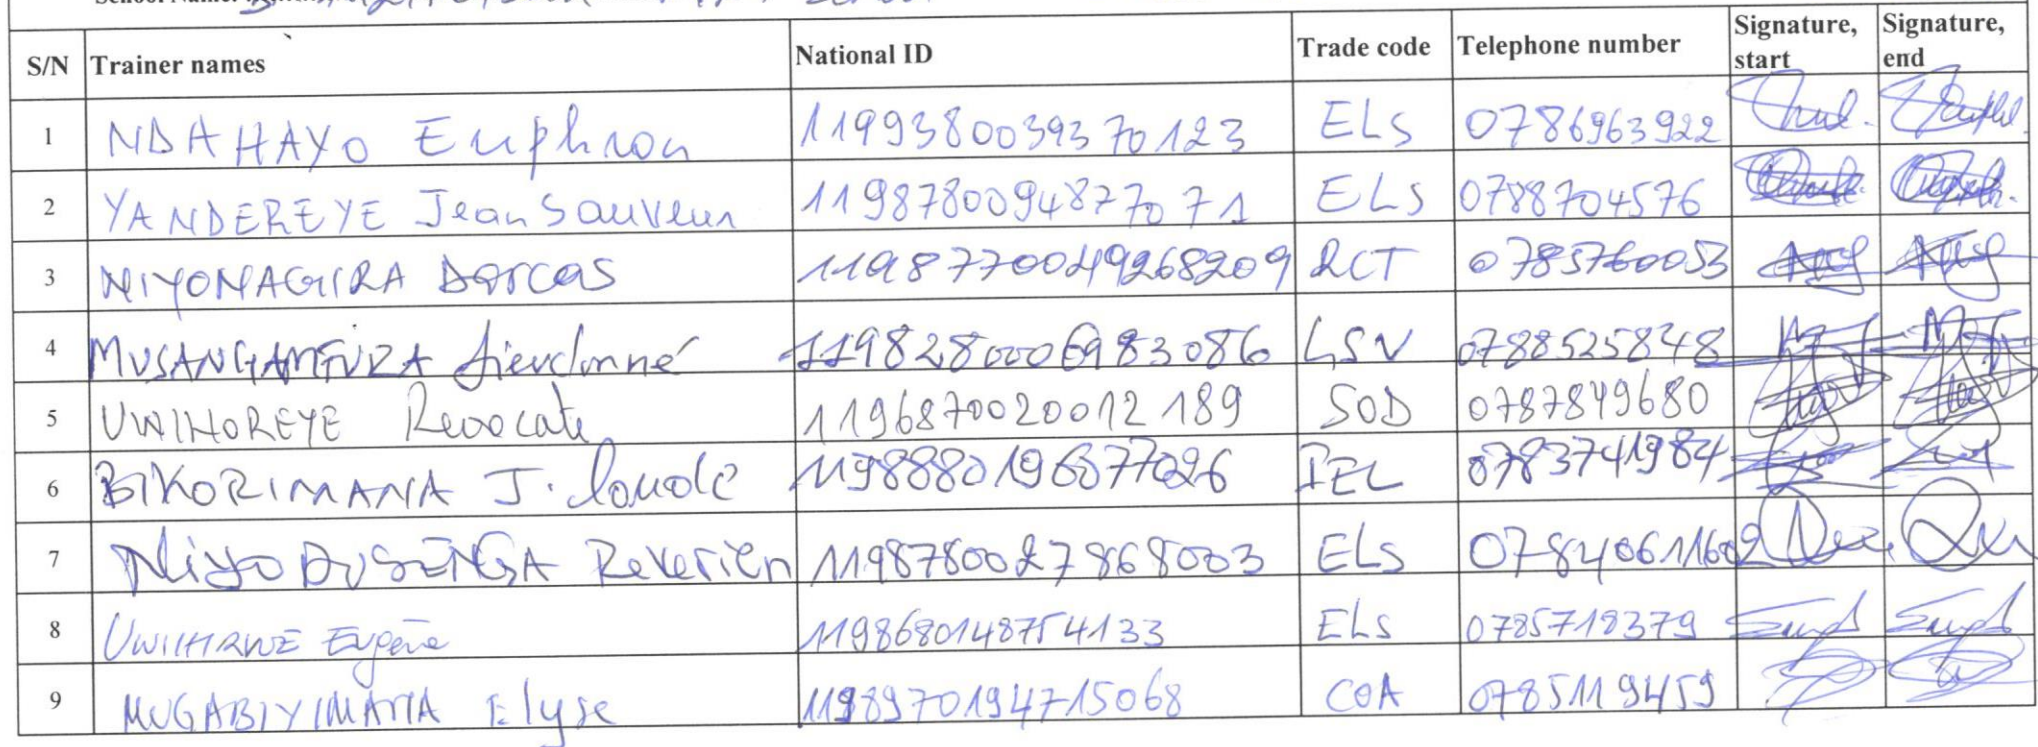 School Name:
S/N Trainer names National ID Trade code Telephone number Signature, start Signature, end
1 NDAHAYO Euphron 1199380039370123 ELS 0786963922
2 YANDEREYE Jean Sauveur 1198780094877071 ELS 0788704576
3 NIYONAGIRA Dorcas 1198770049268209 RCT 0785760053
4 MUSANGAMFURA dieudonné 1198280006983086 LSV 0788525848
5 UWIHOREYE Revocate 1196870020012189 SOD 0787849680
6 BIKORIMANA J. Claude 1198880196077026 IEL 0783741984
7 NIYODUSENGA Reverien 1198780027868003 ELS 0784061160
8 UWIHIRWE Eugène 1198680148754133 ELS 0785718379
9 MUGABIYIMANA Elyse 1198970194715068 COA 0785119459